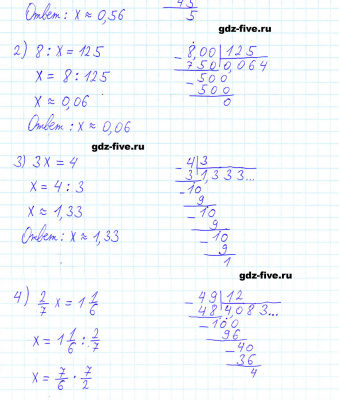 Ответ: x ≈ 0,56
45
5
gdz-five.ru
2) 8 : x = 125
x = 8 : 125
x ≈ 0,06
Ответ: x ≈ 0,06
- 8,00 | 125
750 | 0,064
- 500
500
0
gdz-five.ru
3) 3x = 4
x = 4 : 3
x ≈ 1,33
Ответ: x ≈ 1,33
- 4 | 3
3 | 1,333...
- 10
9
- 10
9
- 10
9
1
gdz-five.ru
4) 2/7 x = 1 1/6
x = 1 1/6 : 2/7
x = 7/6 · 7/2
- 49 | 12
48 | 4,083...
- 100
96
- 40
36
4